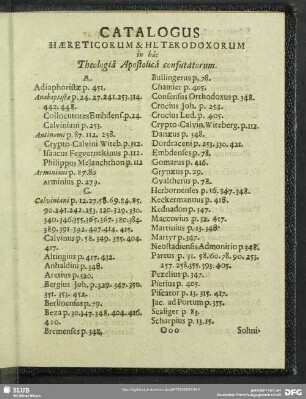 CATALOGUS
HÆRETICORUM & HETERODOXORUM
in hâc
Theologiâ Apostolicâ confutatorum.
A.
Adiaphoristæ p. 451.
Anabaptistæ p. 24. 27. 241. 253. 314.
442. 448.
Collocutores Embdens. p. 24.
Calviniani p. 253.
Antinomi p. 87. 112. 258.
Crypto-Calvini Witeb. p. 112
Isaacus p. 112
Philippus Melanchthon p. 112
Arminiani p. 87. 80
Arminius p. 279.
C.
Calviniani p. 12. 27. 58. 69. 84. 85.
90. 241. 242. 253. 320. 329. 330.
340. 346. 355. 365. 367. 380. 384.
389. 391. 392. 407. 414. 415.
Calvinus p. 58. 349. 355. 404.
417.
Altingius p. 417. 432.
Anhaldini p. 348.
Aretius p. 320.
Bergius Joh. p. 329. 347. 350.
351. 353. 452.
Berlinenses p. 79.
Beza p. 30. 347. 348. 404. 416.
420.
Bremenses p. 348.
Bullingerus p. 78.
Chamier p. 405.
Consensus Orthodoxus p. 348.
Crocius Joh. p. 254.
Crocius Lud. p. 405.
Crypto-Calvin. Witeberg. p. 112
Danæus p. 348.
Dordraceni p. 253. 330. 421.
Embdenses p. 78.
Gomarus p. 416.
Grynæus p. 29.
Gvaltherus p. 78.
Herbornenses p. 16. 347. 348.
Keckermannus p. 418.
Kednadon p. 347.
Maccovius p. 32. 417.
Martinius p. 13. 348
Martyr p. 347.
Neostadiensis Admonitio p. 348.
Pareus p. 31. 58. 60. 78. 90. 253.
257. 258. 355. 393. 405.
Pezelius p. 347.
Pierius p. 405.
Piscator p. 13. 315. 417.
Jac. ad Portum p. 355.
Scaliger p. 83.
Scharpius p. 13. 15.
Ooo Sohni-